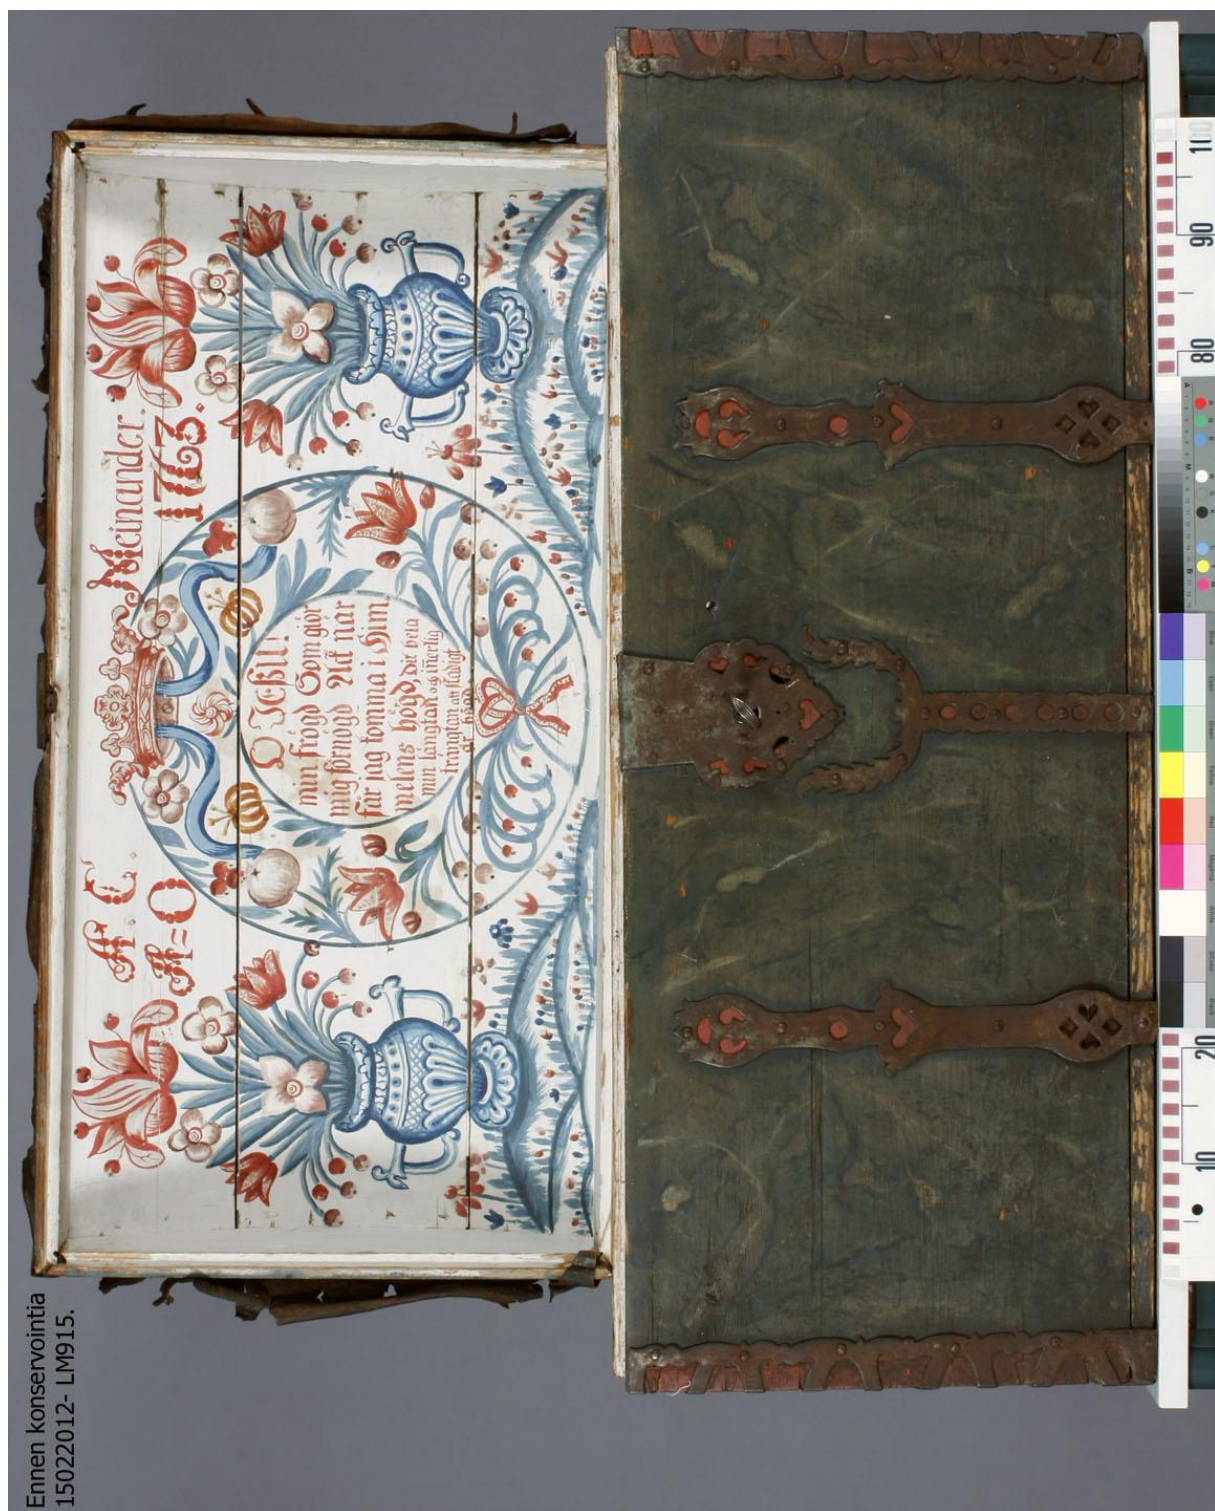 Ennen konservointia
15022012- LM915.
A. C. Meinander.
A=O 1763.
O JEßU!
min frögd Som giör
mig förnögd Ack när
får jag komma i Him
melens högd Dit hela
min längtan
trängtan att städigt
100
90
80
20
10